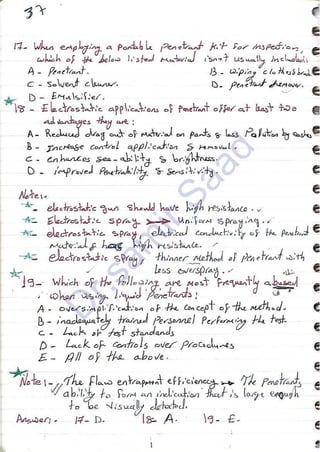 37
17- When employing a Portable Penetrant Kit For inspection,
which of the below listed material isn't usually included:
A - Penetrant. B - Wiping cloths & brush
C - Solvent cleaner. D. Penetrant remover.
D - Emulsifier.
18 - Electrostatic applications of Penetrant offer at least two
advantages they are:
A- Reduced drag out of material on parts & less Pollution by
B - Increase control application & removal.
C - enhances see-ability & brightness.
D - improved Penetrability & Sensitivity.
Note:-
- electrostatic gun should have high resistance.
- Electrostatic spray → Uniform spraying.
- electrostatic spray, electrical conductivity of the Penetrant
material has high resistance.
- electrostatic spray, thinner method of Penetrant with
less overspray.
19- Which of the following are most frequently abused
when using liquid Penetrants:
A - oversimplification of the concept of the method.
B - inadequately trained Personnel Performing the test.
C - Lack of test standards
D - Lack of controls over Procedures
E - All of the above.
Note:- The Flaw entrapment efficiency → The Penetrants
ability to form an indication that is large enough
to be visually detected.
Answer:- 17- D. 18- A. 19- E.
1